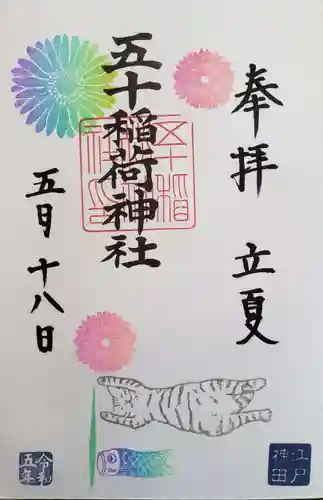 奉拝 立夏
五十稲荷神社
五月十八日
五十稲
江戸
神田
令和
五年